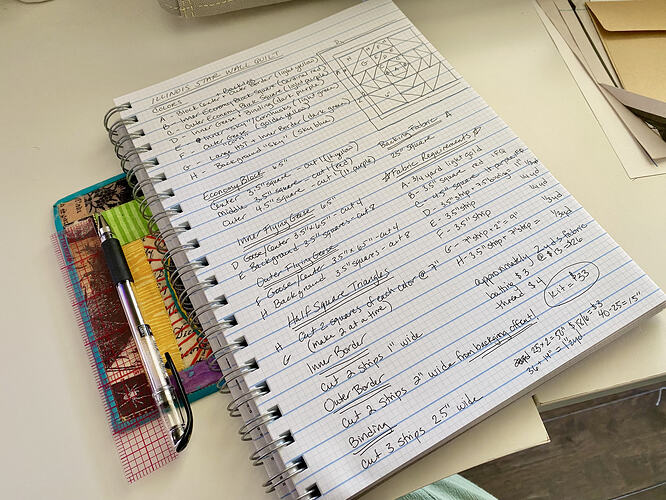 ILLINOIS STAR WALL QUILT
COLORS
A - Block Center + Outer Border (light yellow)
B - Inner Economy Block Square (cardinal red)
C - Outer Economy Block Square (light purple)
D - Inner Geese + Binding (dark purple)
E - Inner "Sky" (cornhusks / light green)
F - Outer Geese (golden yellow)
G - Large HST - Inner Border (dark green)
H - Background "Sky" (sky blue)
Economy Block 6.5"
Center 3.5" square - cut 1 (lt yellow)
Middle 3.5" square - cut 2 (red)
Outer 4.5" square - cut 2 (lt. purple)
Inner Flying Geese 6.5"
D Goose/Center 3.5" x 6.5" - cut 4
E Background 3.5" squares - cut 8
Outer Flying Geese
F Goose/Center 3.5" x 6.5" - cut 4
H Background 3.5" squares - cut 8
Half Square Triangles
H Cut 2 squares of each color @ 7"
G (make 2 at a time)
Inner Border
cut 3 strips 1" wide
Outer Border
cut 2 strips 2" wide from backing offset!
Binding
cut 3 strips 2.5" wide
Backing Fabric A
25" square
Fabric Requirements
A - 3/4 yard light gold
B - 3.5" square red
C - 4.5" square lt purple
D - 3.5" strip + 7.5" binding
E - 3.5" strip
F - 3.5" strip
G - 7" strip + 2" = 9"
H - 3.5" strip + 7" strip =
approximately 2 yards fabric
@ $13 = $26
batting $3
thread $4
Kit = $33
40-25=15"
36 + 14" =